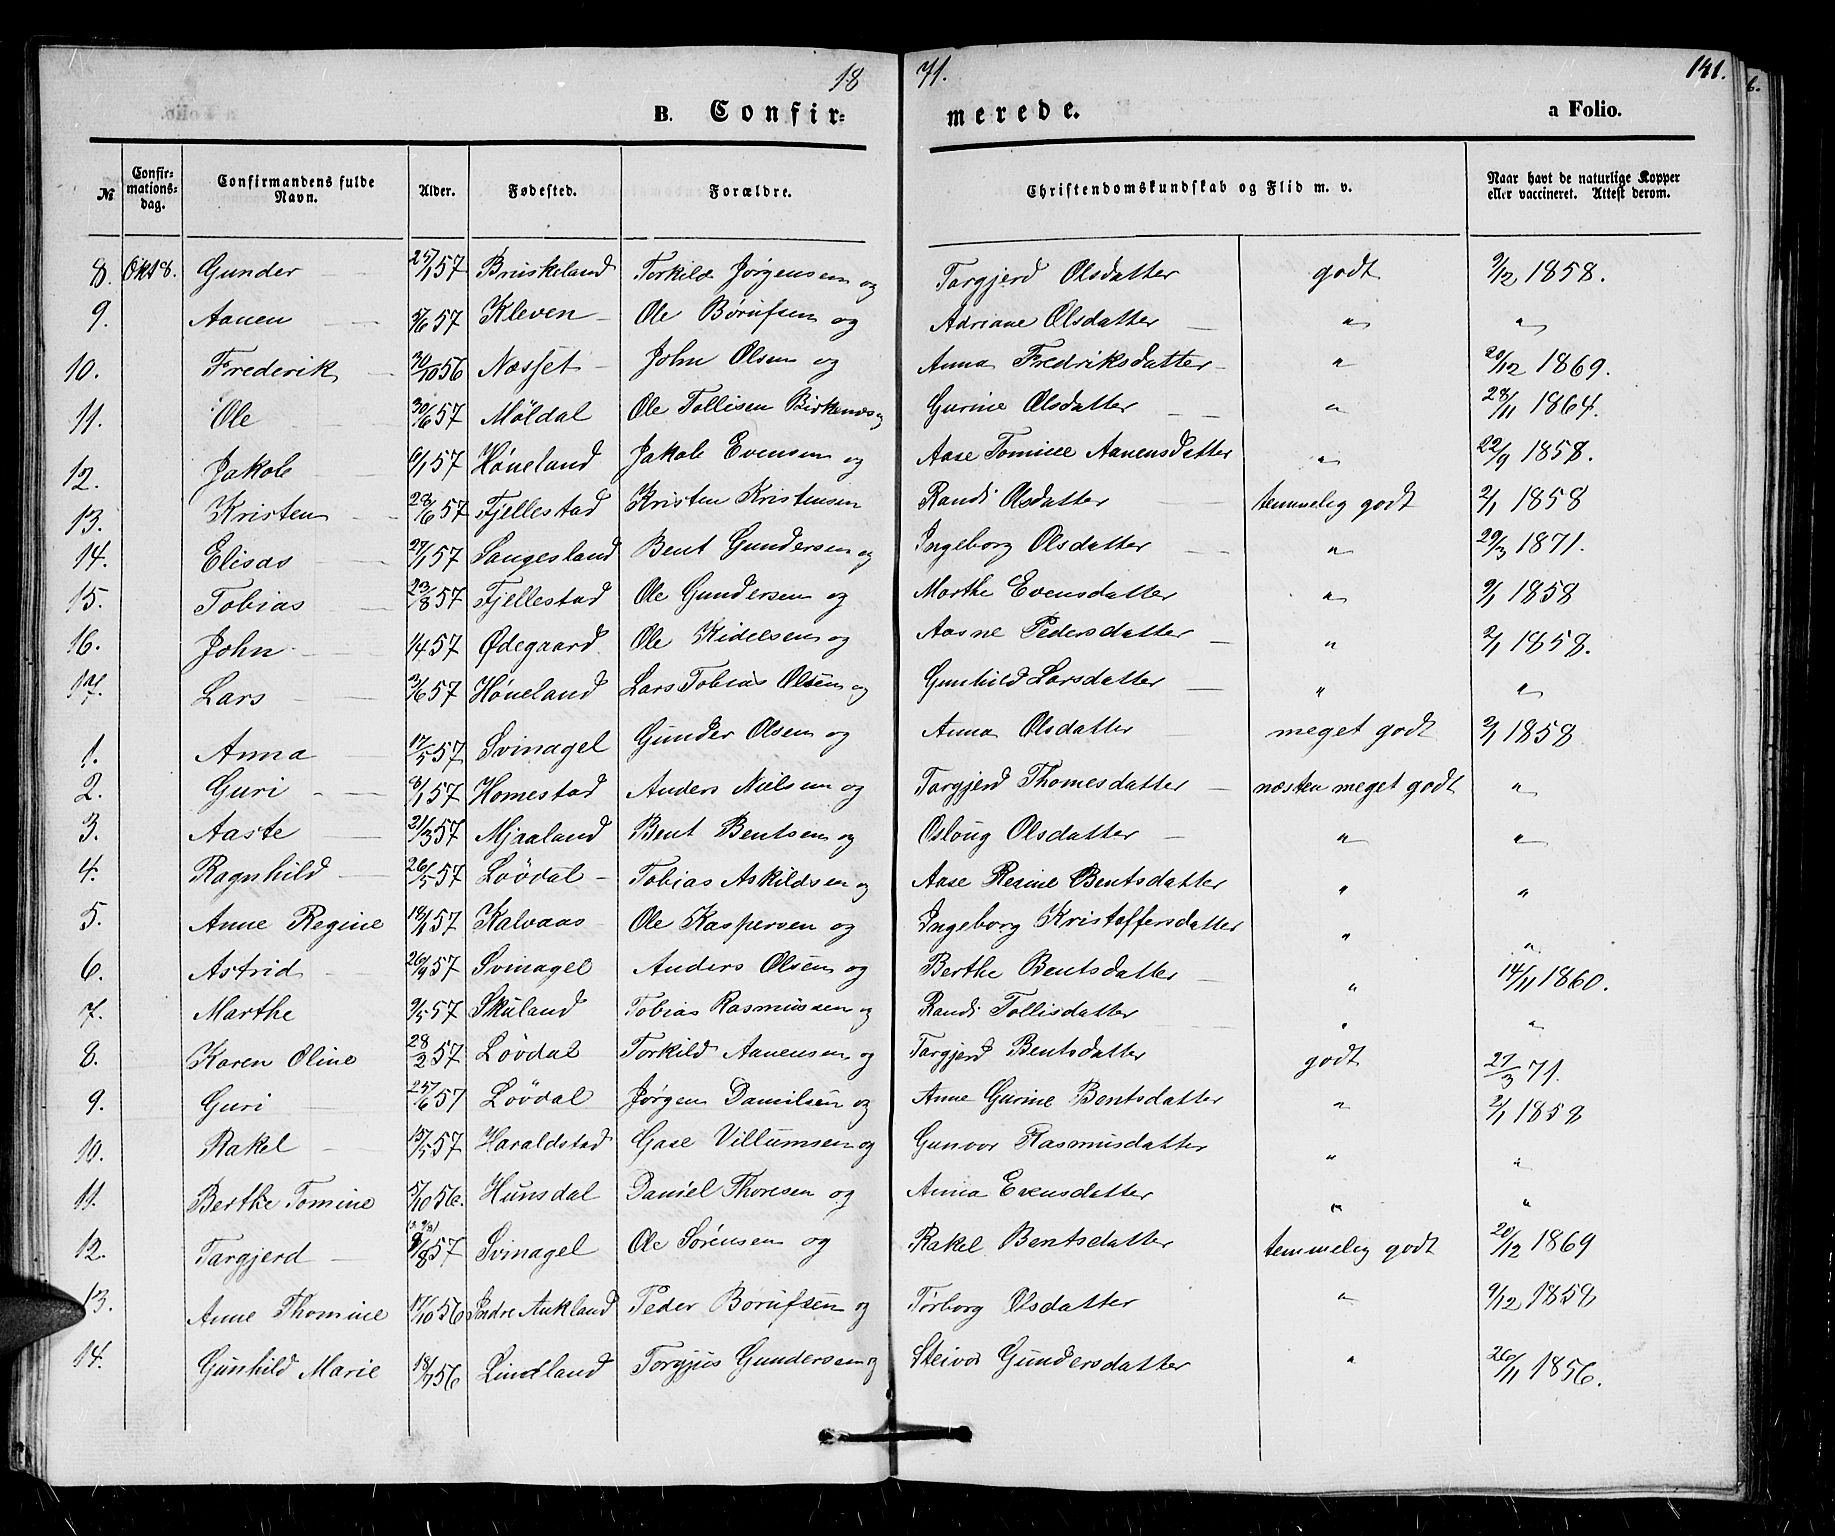 1871. 141.
B. Confirmerede. a Folio.
№ Confirmationsdag. Confirmandens fulde Navn. Alder. Fødested. Forældre. Christendomskundskab og Flid m. v. Naar havt de naturlige Kopper eller vaccineret. Attest derom.
8. Okt 8. Gunder 25/1 57 Bruskeland Torkild Jørgensen og Targjerd Olsdatter godt 9/12 1858.
9. Aanen 5/6 57 Kleven Ole Børufsen og Adriane Olsdatter " "
10. Frederik 30/10 56 Næsset John Olsen og Anna Fredriksdatter " 20/12 1869.
11. Ole 30/6 57 Möldal Ole Tollisen Birkenæs og Gurine Olsdatter " 28/11 1864.
12. Jakob 6/1 57 Høneland Jakob Evensen og Aase Tomine Aanensdatter " 22/9 1858.
13. Kristen 28/6 57 Fjellestad Kristen Kristensen Randi Olsdatter temmelig godt 2/1 1858
14. Elisas 27/1 57 Sangesland Bent Gundersen og Ingeborg Olsdatter " 29/3 1871.
15. Tobias 23/8 57 Fjellestad Ole Gundersen og Marthe Evensdatter " 2/1 1858
16. John 1/4 57 Ødegaard Ole Kidelsen og Aasne Pedersdatter " 2/1 1858.
17. Lars 3/6 57 Høneland Lars Tobias Olsen og Gunhild Larsdatter " "
1. Anna 17/5 57 Svinagel Gunder Olsen og Anna Olsdatter meget godt 2/1 1858
2. Guri 8/1 57 Homestad Anders Nielsen og Targjerd Thomesdatter næsten meget godt "
3. Aaste 21/3 57 Mjaaland Bent Bentsen og Osloug Olsdatter " "
4. Ragnhild 26/5 57 Løvdal Tobias Askildsen og Aase Resine Bentsdatter " "
5. Anne Regine 18/1 57 Kalvaas Ole Kaspersen og Ingeborg Kristoffersdatter " "
6. Astrid 26/9 57 Svinagel Anders Olsen og Berthe Bentsdatter " 14/11 1860.
7. Marthe 9/5 57 Skuland Tobias Rasmussen og Randi Tollisdatter " "
8. Karen Oline 28/2 57 Løvdal Torkild Aanensen og Targjerd Bentsdatter godt 27/3 71.
9. Guri 25/6 57 Løvdal Jørgen Danilsen og Anne Gurine Bentsdatter " 2/1 1858
10. Rakel 15/5 57 Haraldstad Gase Villumsen og Gunvor Rasmusdatter " "
11. Berthe Tomine 5/10 56. Hunsdal Daniel Thoresen og Anna Evensdatter " "
12. Targjerd 9/8 57 Svinagel Ole Sørensen og Rakel Bentsdatter temmelig godt 20/12 1869
13. Anne Thomine 17/10 56 Indre Aukland Peder Børufsen og Tørborg Olsdatter " 9/12 1858
14. Gunhild Marie 18/7 56 Lindland Torgjus Gundersen og Steivor Gundersdatter " 26/11 1856.